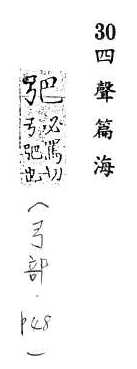 30四聲篇海
弝
必罵切
弓弝也
(弓部.p48)